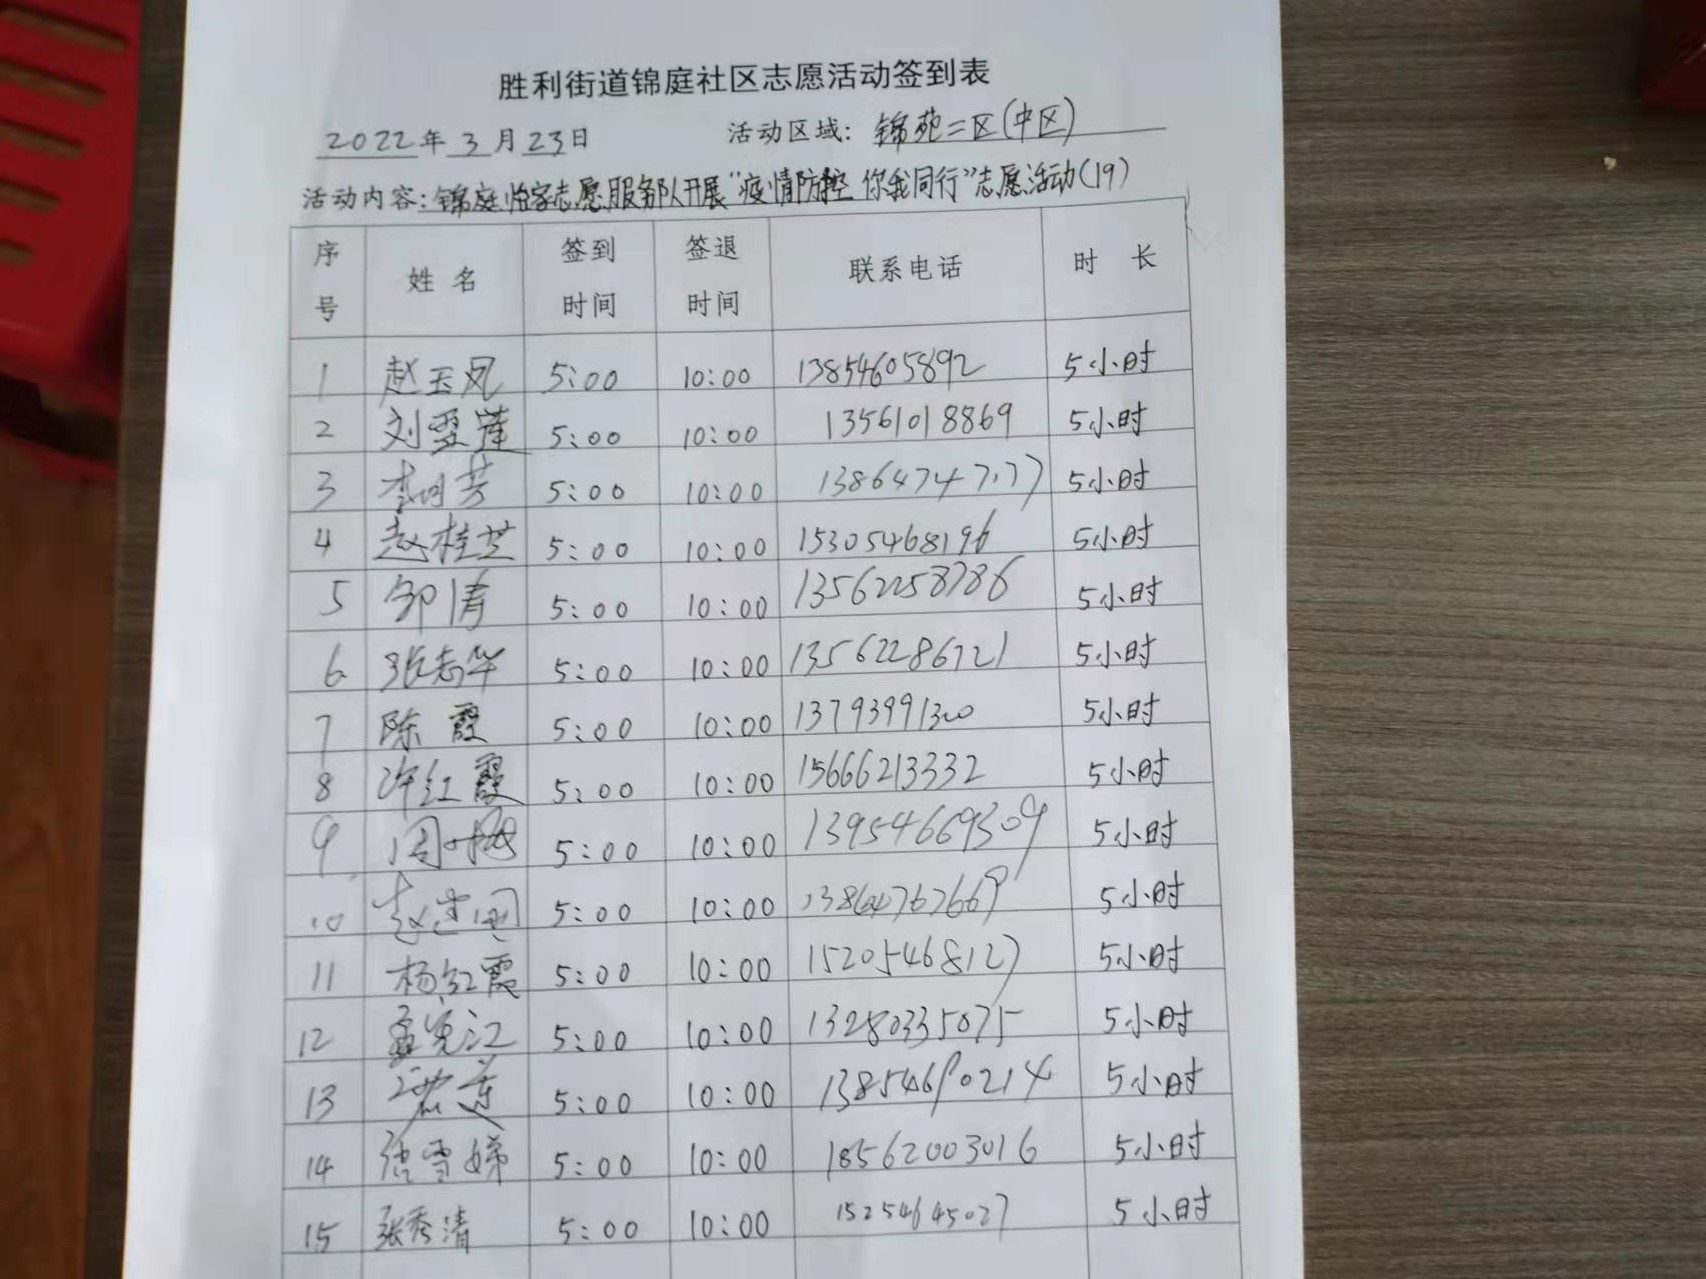 胜利街道锦庭社区志愿活动签到表
2022年3月23日 活动区域: 锦苑二区(中区)
活动内容: 锦庭临家志愿服务队开展"疫情防控 你我同行"志愿活动(19)
序号 姓名 签到时间 签退时间 联系电话 时长
1 赵玉凤 5:00 10:00 13854605892 5小时
2 刘雪莲 5:00 10:00 13561018869 5小时
3 李明芳 5:00 10:00 5小时
4 赵桂芝 5:00 10:00 15305468196 5小时
5 邹倩 5:00 10:00 13562258786 5小时
6 张志华 5:00 10:00 13562286721 5小时
7 陈霞 5:00 10:00 13793991300 5小时
8 许红霞 5:00 10:00 15666213332 5小时
9 周梅 5:00 10:00 13954669309 5小时
10 5:00 10:00 13864767669 5小时
11 杨红霞 5:00 10:00 15205468127 5小时
12 孟宪江 5:00 10:00 13280335075 5小时
13 5:00 10:00 13854690214 5小时
14 5:00 10:00 18562003016 5小时
15 张秀清 5:00 10:00 15254645027 5小时